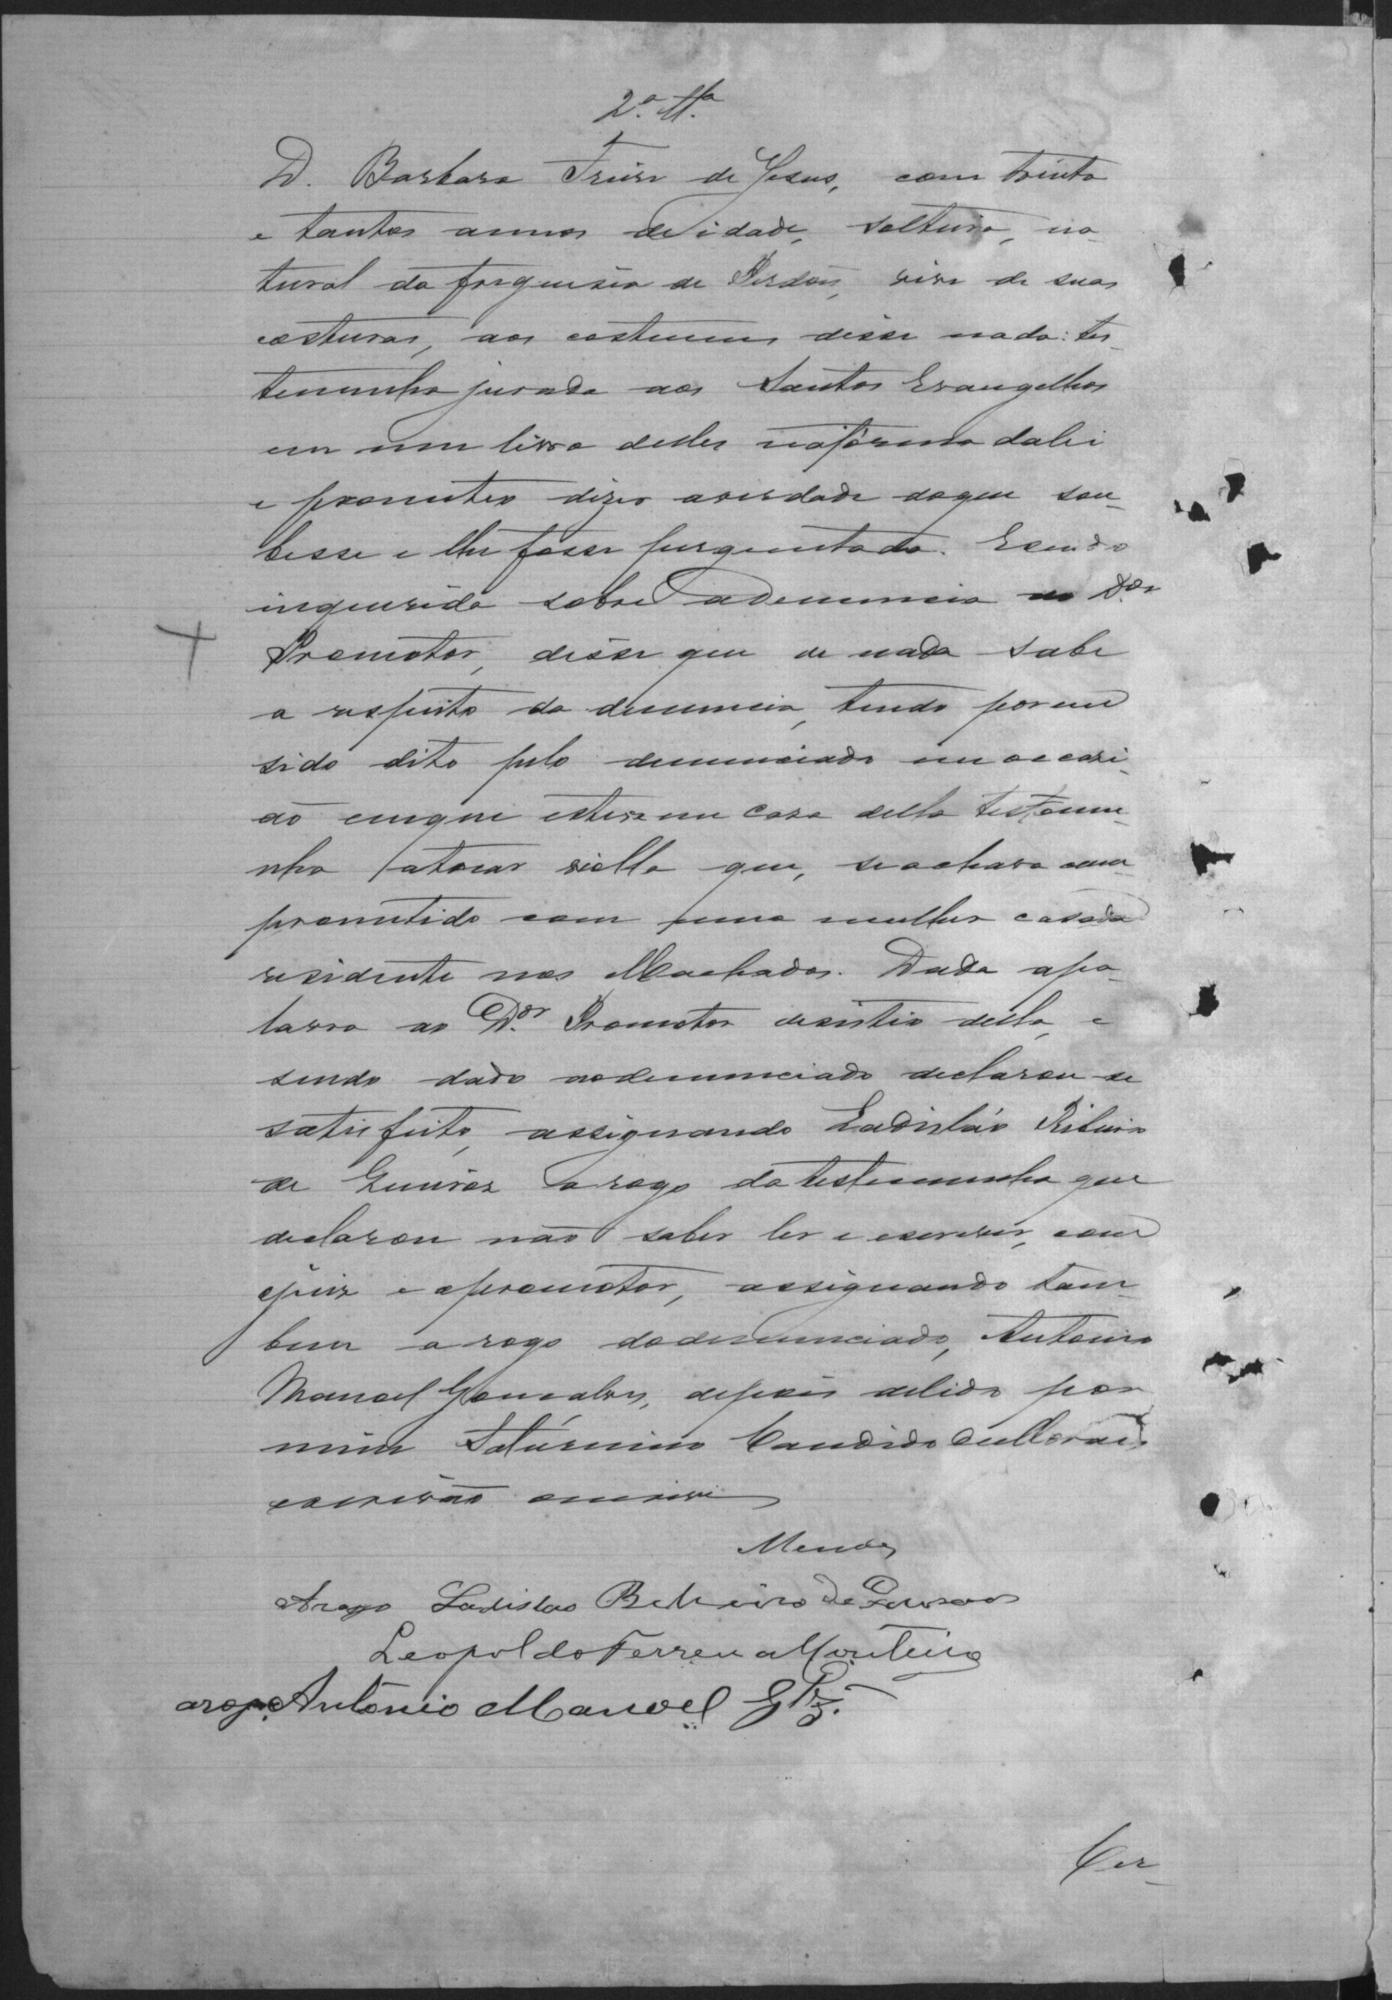 2.ª Tt.ª
D. Barbara Freire de Jesus, com trinta
e tantos annos de idade, solteira, na-
tural da freguesia de Perdões, vive de suas
costuras, aos costumes disse nada: tes-
temunha jurada aos Santos Evangelhos
em um livro delles na forma da lei
e prometteo dizer a verdade do que sou-
besse e lhe fosse perguntado. E sendo
inquerida sobre a denuncia do Dor
Promotor, disse que de nada sabe
a respeito da denuncia, tendo porem
sido dito pelo denunciado em occasi-
ão em que esteve em casa della testemu-
nha a tocar violla que, se achava com-
promettido com uma mulher casada
residente nos Machados. Dada a pa-
lavra ao Dor Promotor desistio della, e
sendo dado ao denunciado declarou-se
satisfeito, assignando Ladisláo Ribeiro
de a rogo da testemunha que
declarou não saber ler e escrever, com
o juiz e o promotor, assignando tam-
bem a rogo do denunciado, Antonio
Manoel Gonçalves, depois de lido por
mim Saturnino Candido de Moraes
escrivão o escrevi
Mendes
Arogo Ladislao Ribeiro de
Leopoldo Ferreira Monteiro
arogo Antonio Manoel Glz.
Cer-